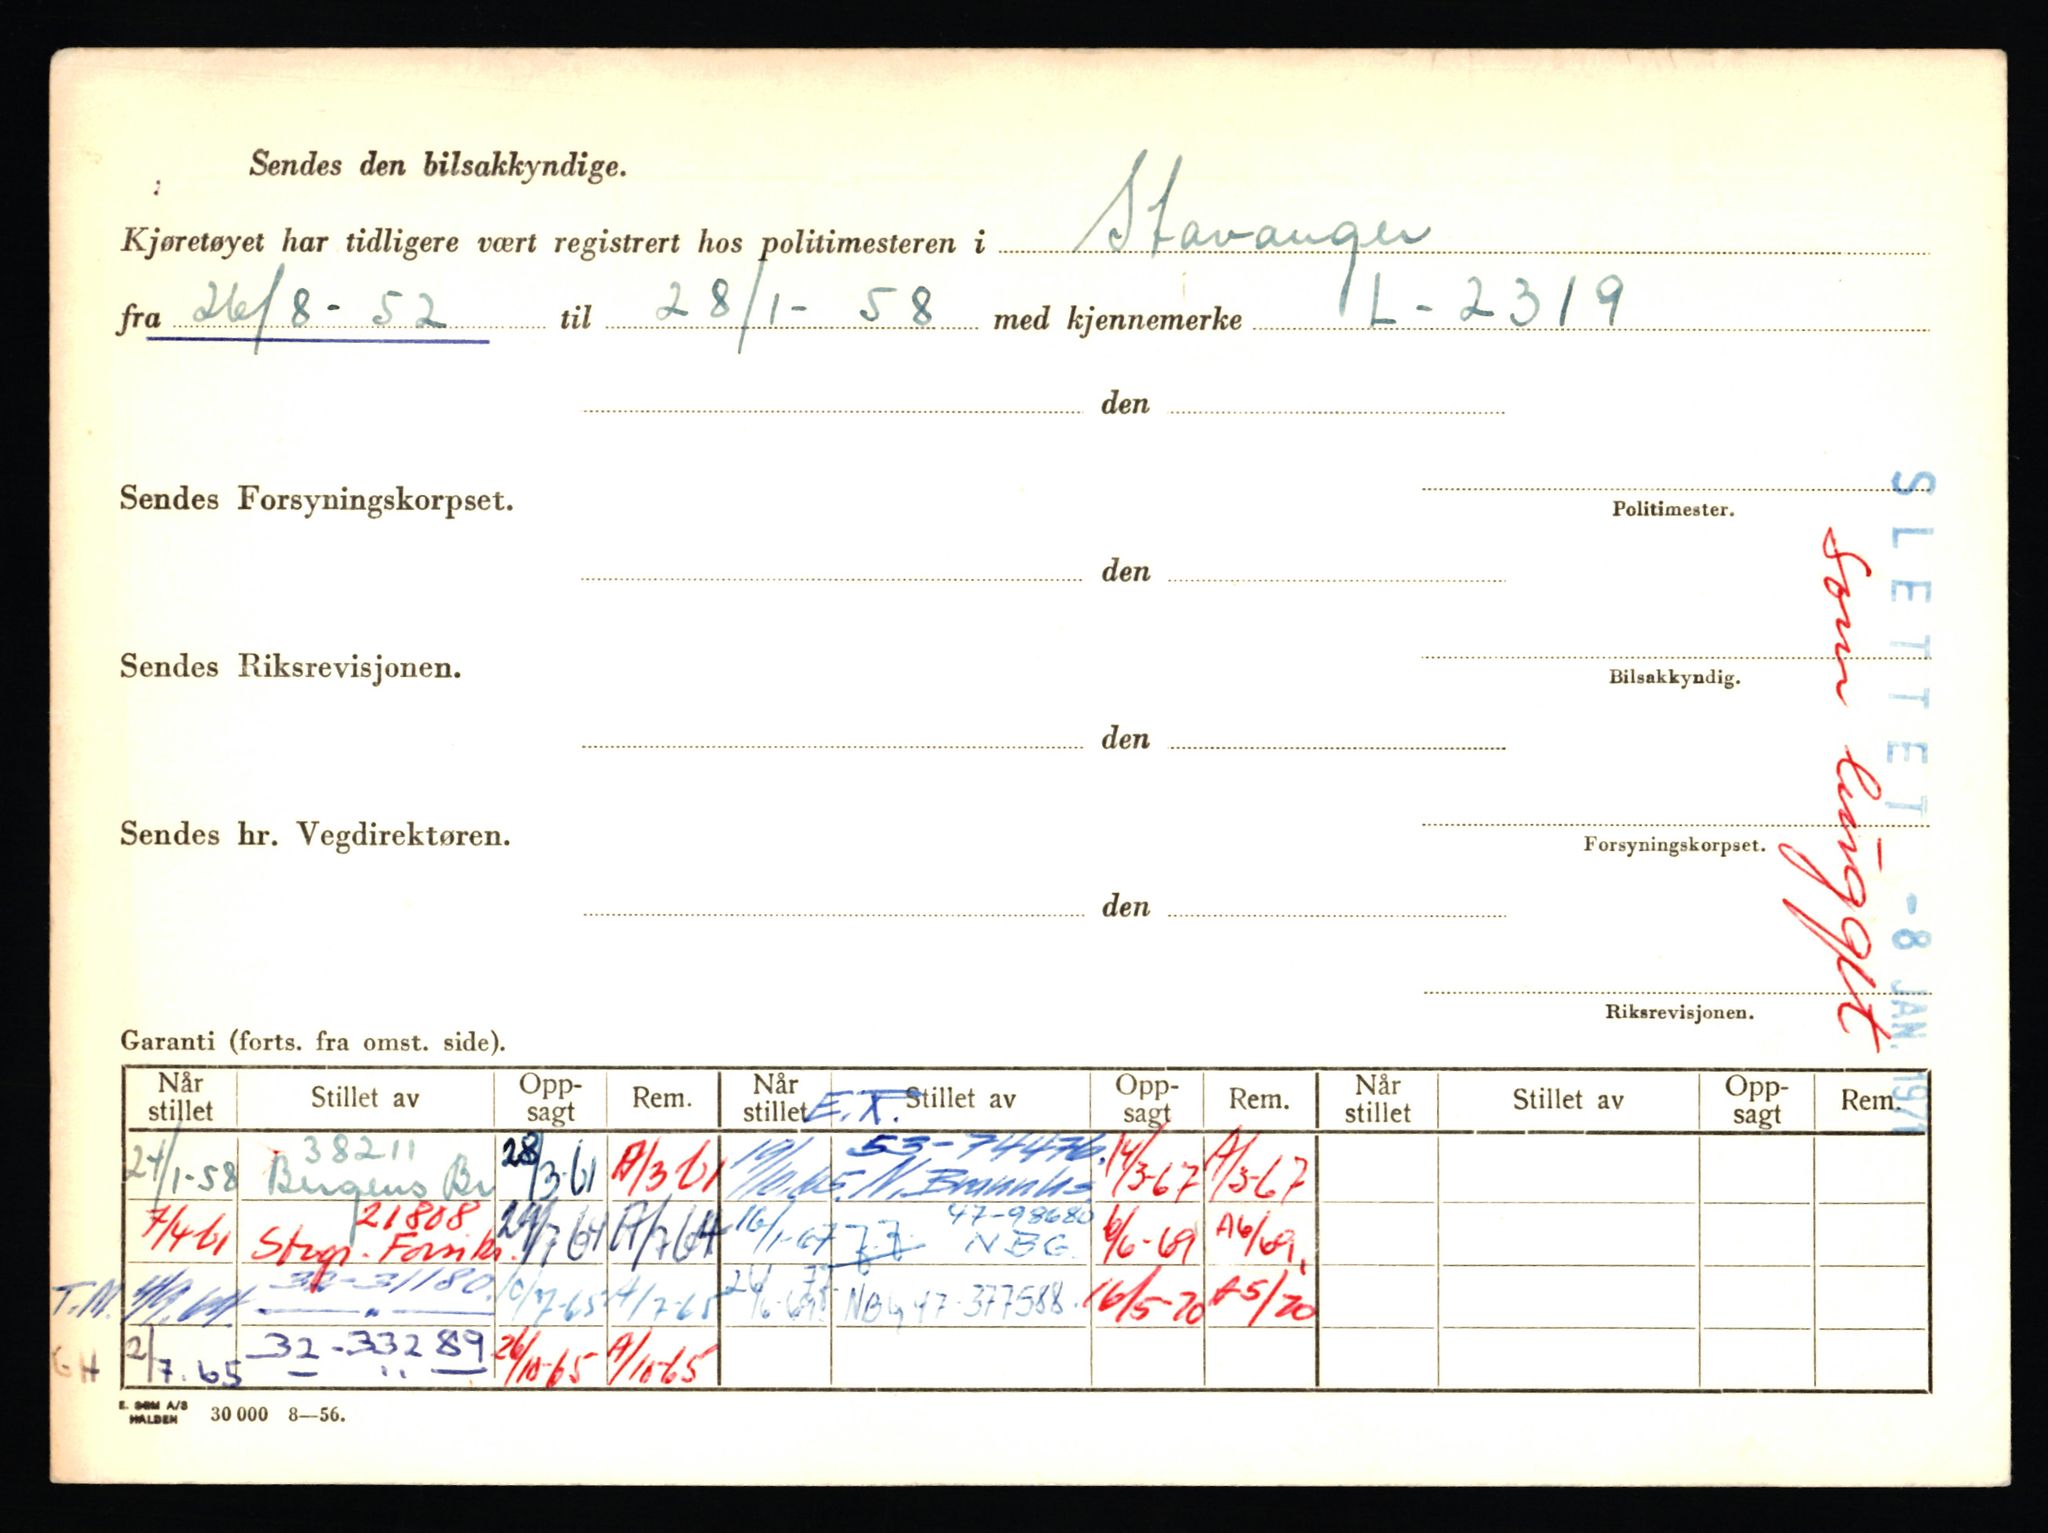 Sendes den bilsakkyndige.
Kjøretøyet har tidligere vært registrert hos politimesteren i Stavanger
fra 26/8 - 52 til 28/1 - 58 med kjennemerke L - 2319
den
Sendes Forsyningskorpset.
Politimester.
den
Sendes Riksrevisjonen.
Bilsakkyndig.
den
Sendes hr. Vegdirektøren.
Forsyningskorpset.
den
Riksrevisjonen.
SLETTET - 8 JAN. 1971
Som
Garanti (forts. fra omst. side).
Når stillet Stillet av Opp-sagt Rem. Når stillet Stillet av Opp-sagt Rem. Når stillet Stillet av Opp-sagt Rem.
E.T.
24/1-58 38211 Bergens Br 28/3-61 A/3-61 53-74476. 14/3-67 A/3-67
7/4-61 21808 29/7-64 A/7-64 16/1-67 47-98680 NBG. 6/6-69 A6/69
T.M. 32-31180. A/7-65 NBG 47-377588. 16/5-70 A5/70
GH 2/7.65 32-33289 26/10-65 A/10-65
HALDEN 30 000 8—56.